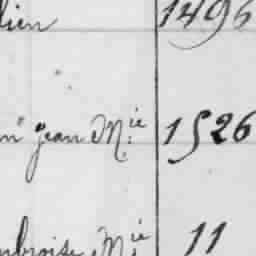 lien 1496
n" Jean M.ie 1526
mbroise M.ie 11